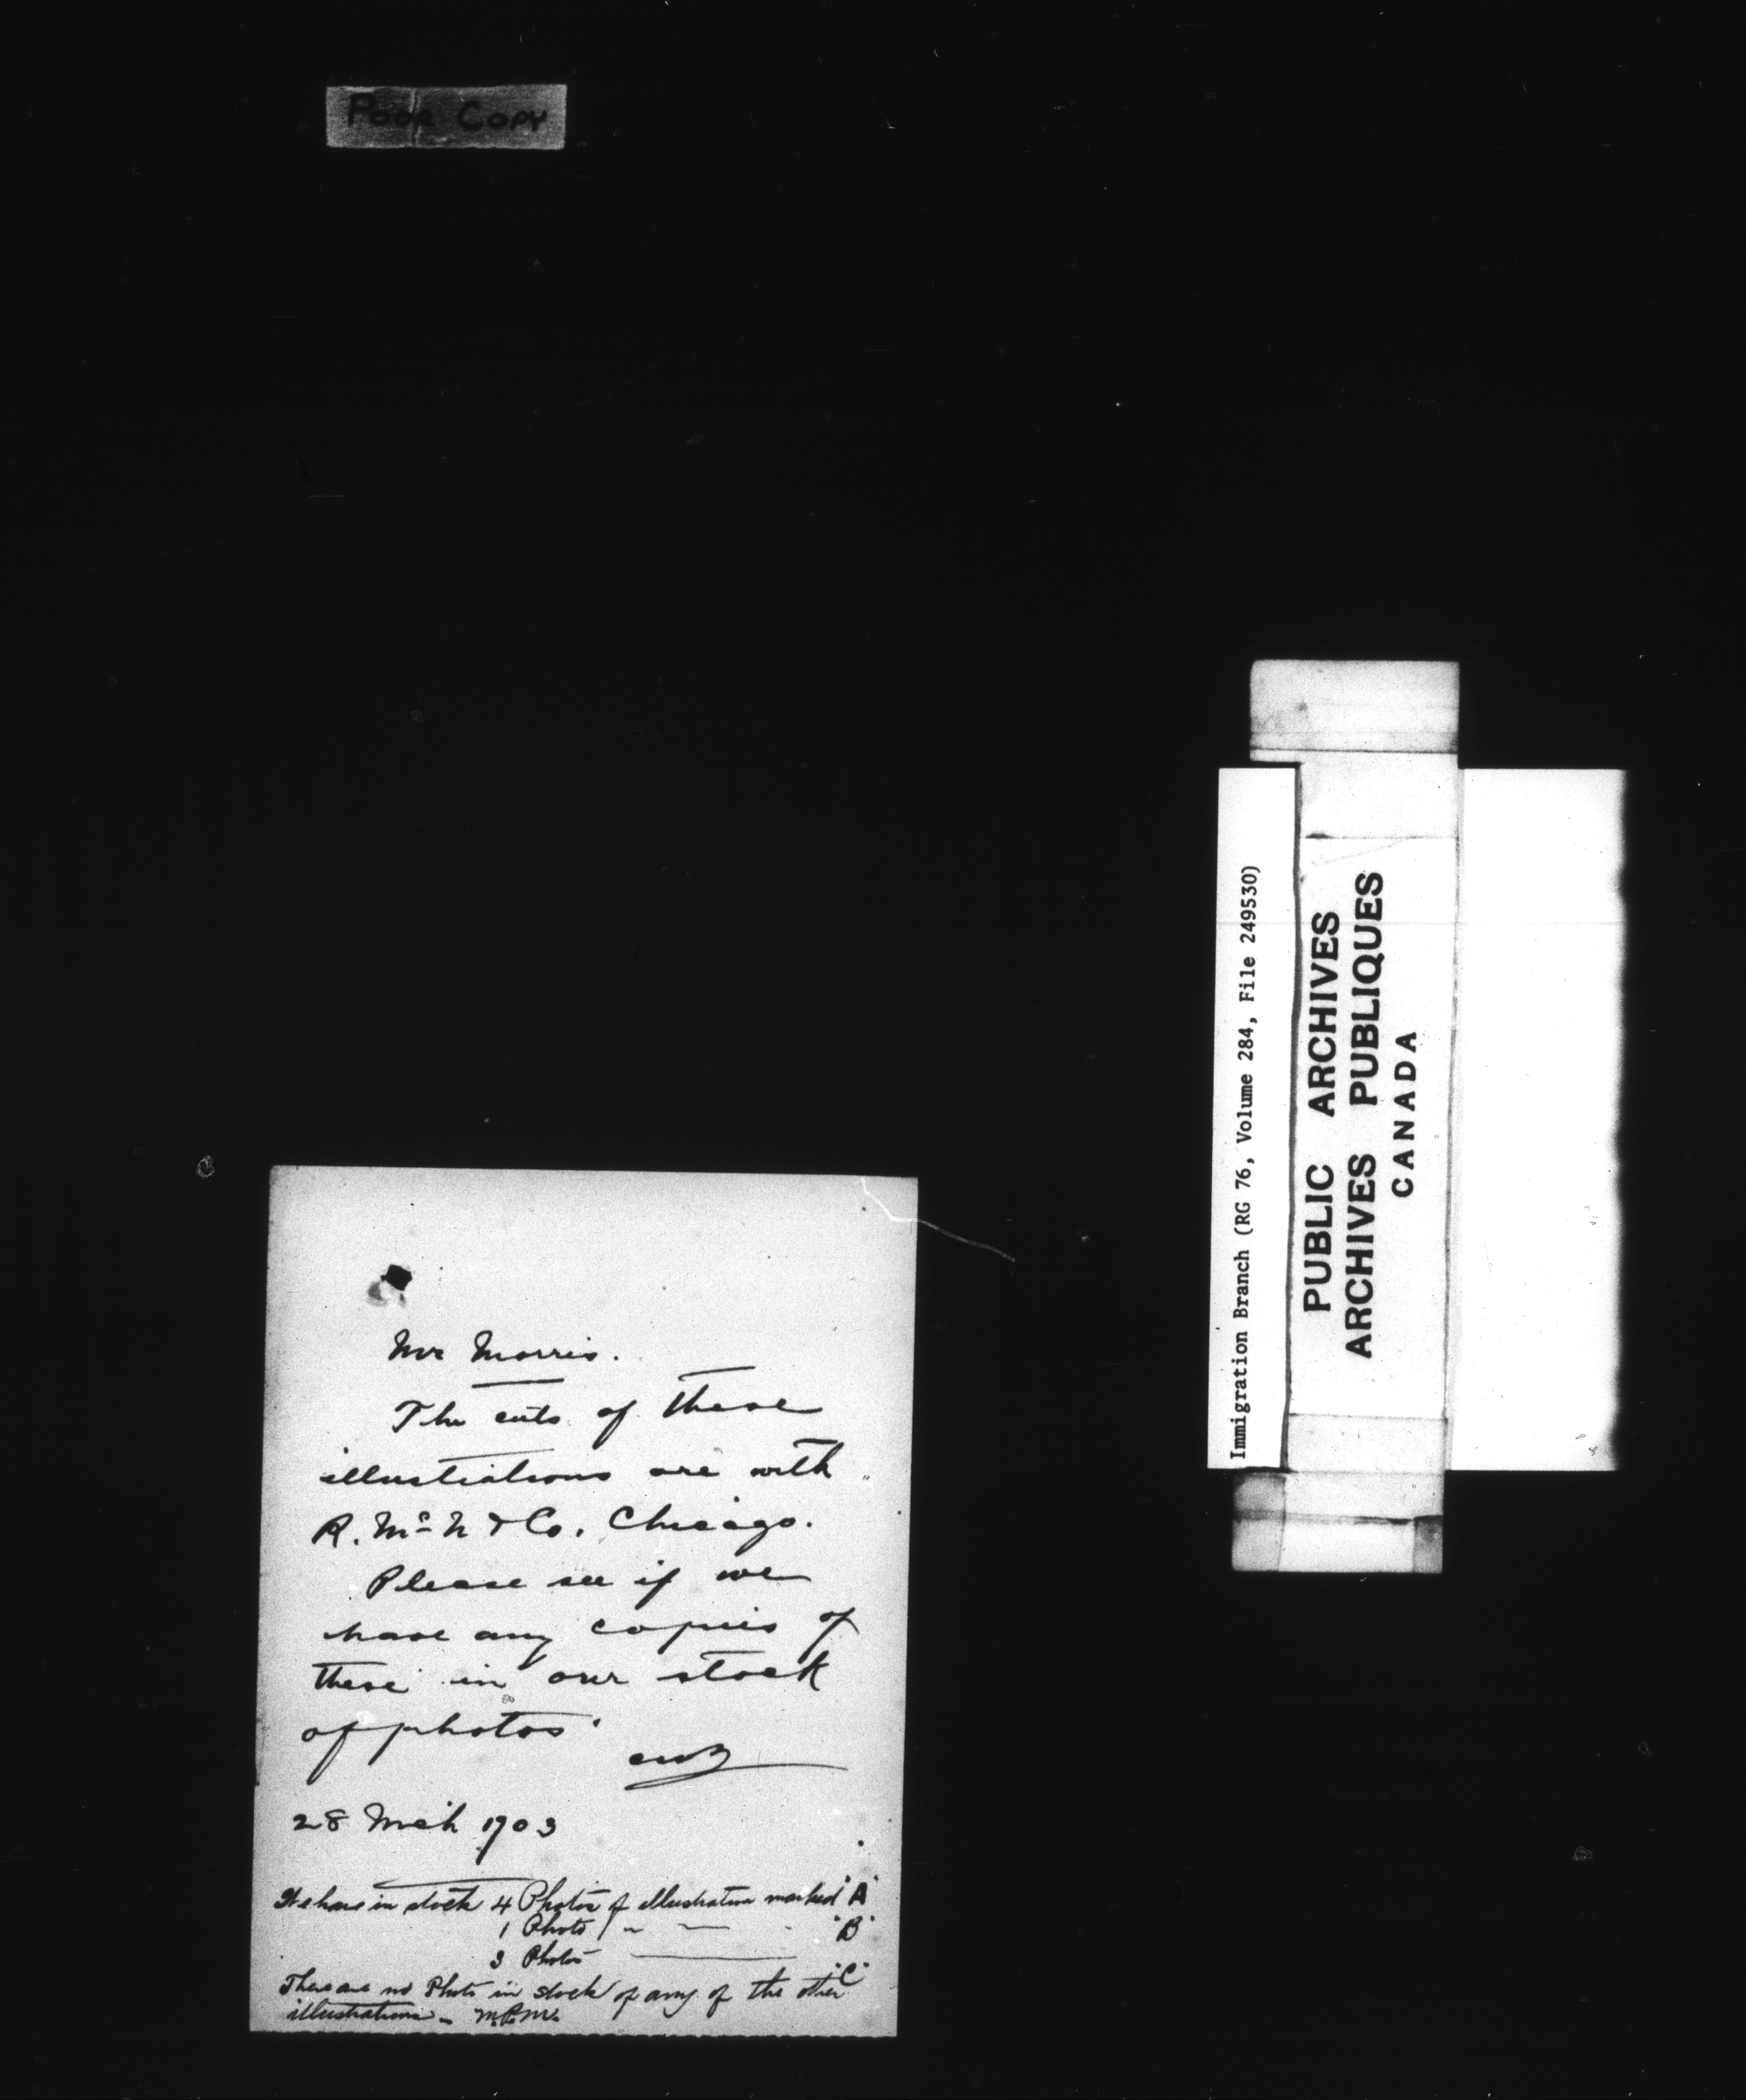 Poor Copy
Mr Morris.
The cuts of these
illustrations are with
R. McN & Co. Chicago.
Please see if we
have any copies of
these in our stock
of photos.
28 Mch 1903
We have in stock 4 Photos of illustration marked "A"
1 Photo " " " "B"
3 Photos "C"
There are no Photo in stock of any of the other
illustrations -
Immigration Branch (RG 76, Volume 284, File 249530)
PUBLIC ARCHIVES
ARCHIVES PUBLIQUES
CANADA